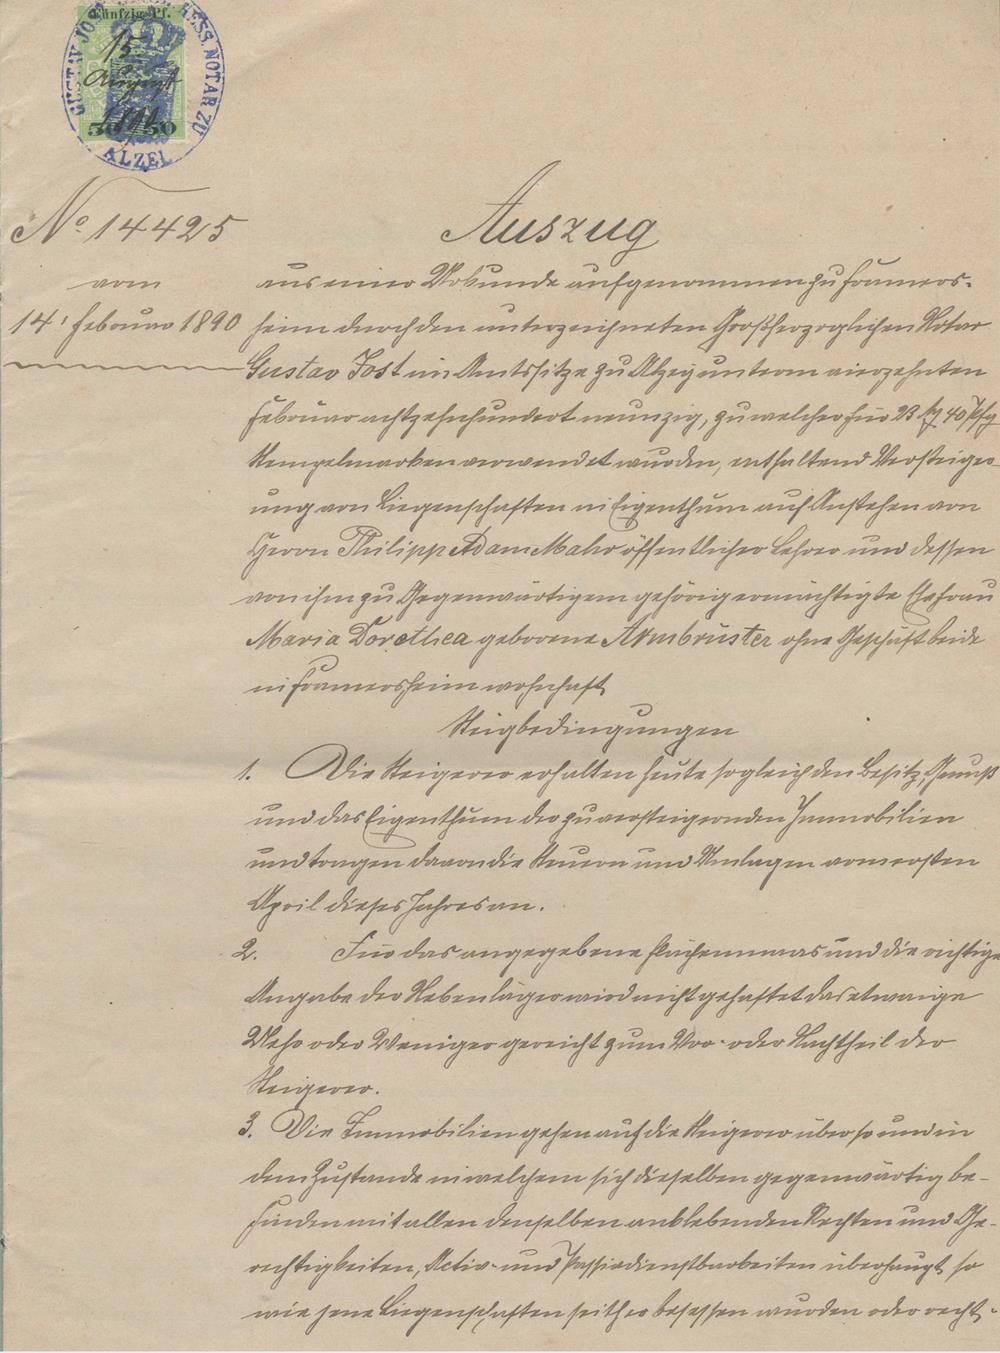 Fünfzig Pf.
GUSTAV JOST HESS. NOTAR ZU ALZEI
15
August
50 50
No 14425
Auszug
vom
14t Februar 1890
aus einer Urkunde aufgenommen zu Framers-
heim durch den unterzeichneten Großherzoglichen Notar
Gustav Jost im Amtssitze zu Alzey unterm vierzehnten
Februar achtzehnhundert neunzig, zu welcher für 23 M 40 Pfg
Stempelmarken verwendet wurden, enthaltend Versteiger-
ung von Liegenschaften in Eigenthum auf Anstehen von
Herrn Philipp Adam Mahr öffentlicher Lehrer und dessen
von ihm zu Gegenwärtigem gehörig ermächtigte Ehefrau
Maria Dorethea geborene Armbrüster ohne Geschäft beide
in Framersheim wohnhaft
Steigbedingungen
1. Die Steigerer erhalten heute sogleich den Besitz, Genuß
und das Eigenthum der zu versteigernden Immobilien
und tragen davon die Steuern und Umlagen vom ersten
April dieses Jahres an.
2. Für das angegebene Flächenmaas und die richtige
Angabe der Nebenläger wird nicht gehaftet das etwaige
Mehr oder Weniger gereicht zum Vor- oder Nachtheil der
Steigerer.
3. Die Immobilien gehen auf die Steigerer über so und in
dem Zustande in welchem sich dieselben gegenwärtig be-
finden mit allen denselben anklebenden Rechten und Ge-
rechtigkeiten, Activ- und Passivdienstbarkeiten überhaupt so
wie jene Liegenschaften seither besessen wurden oder recht-